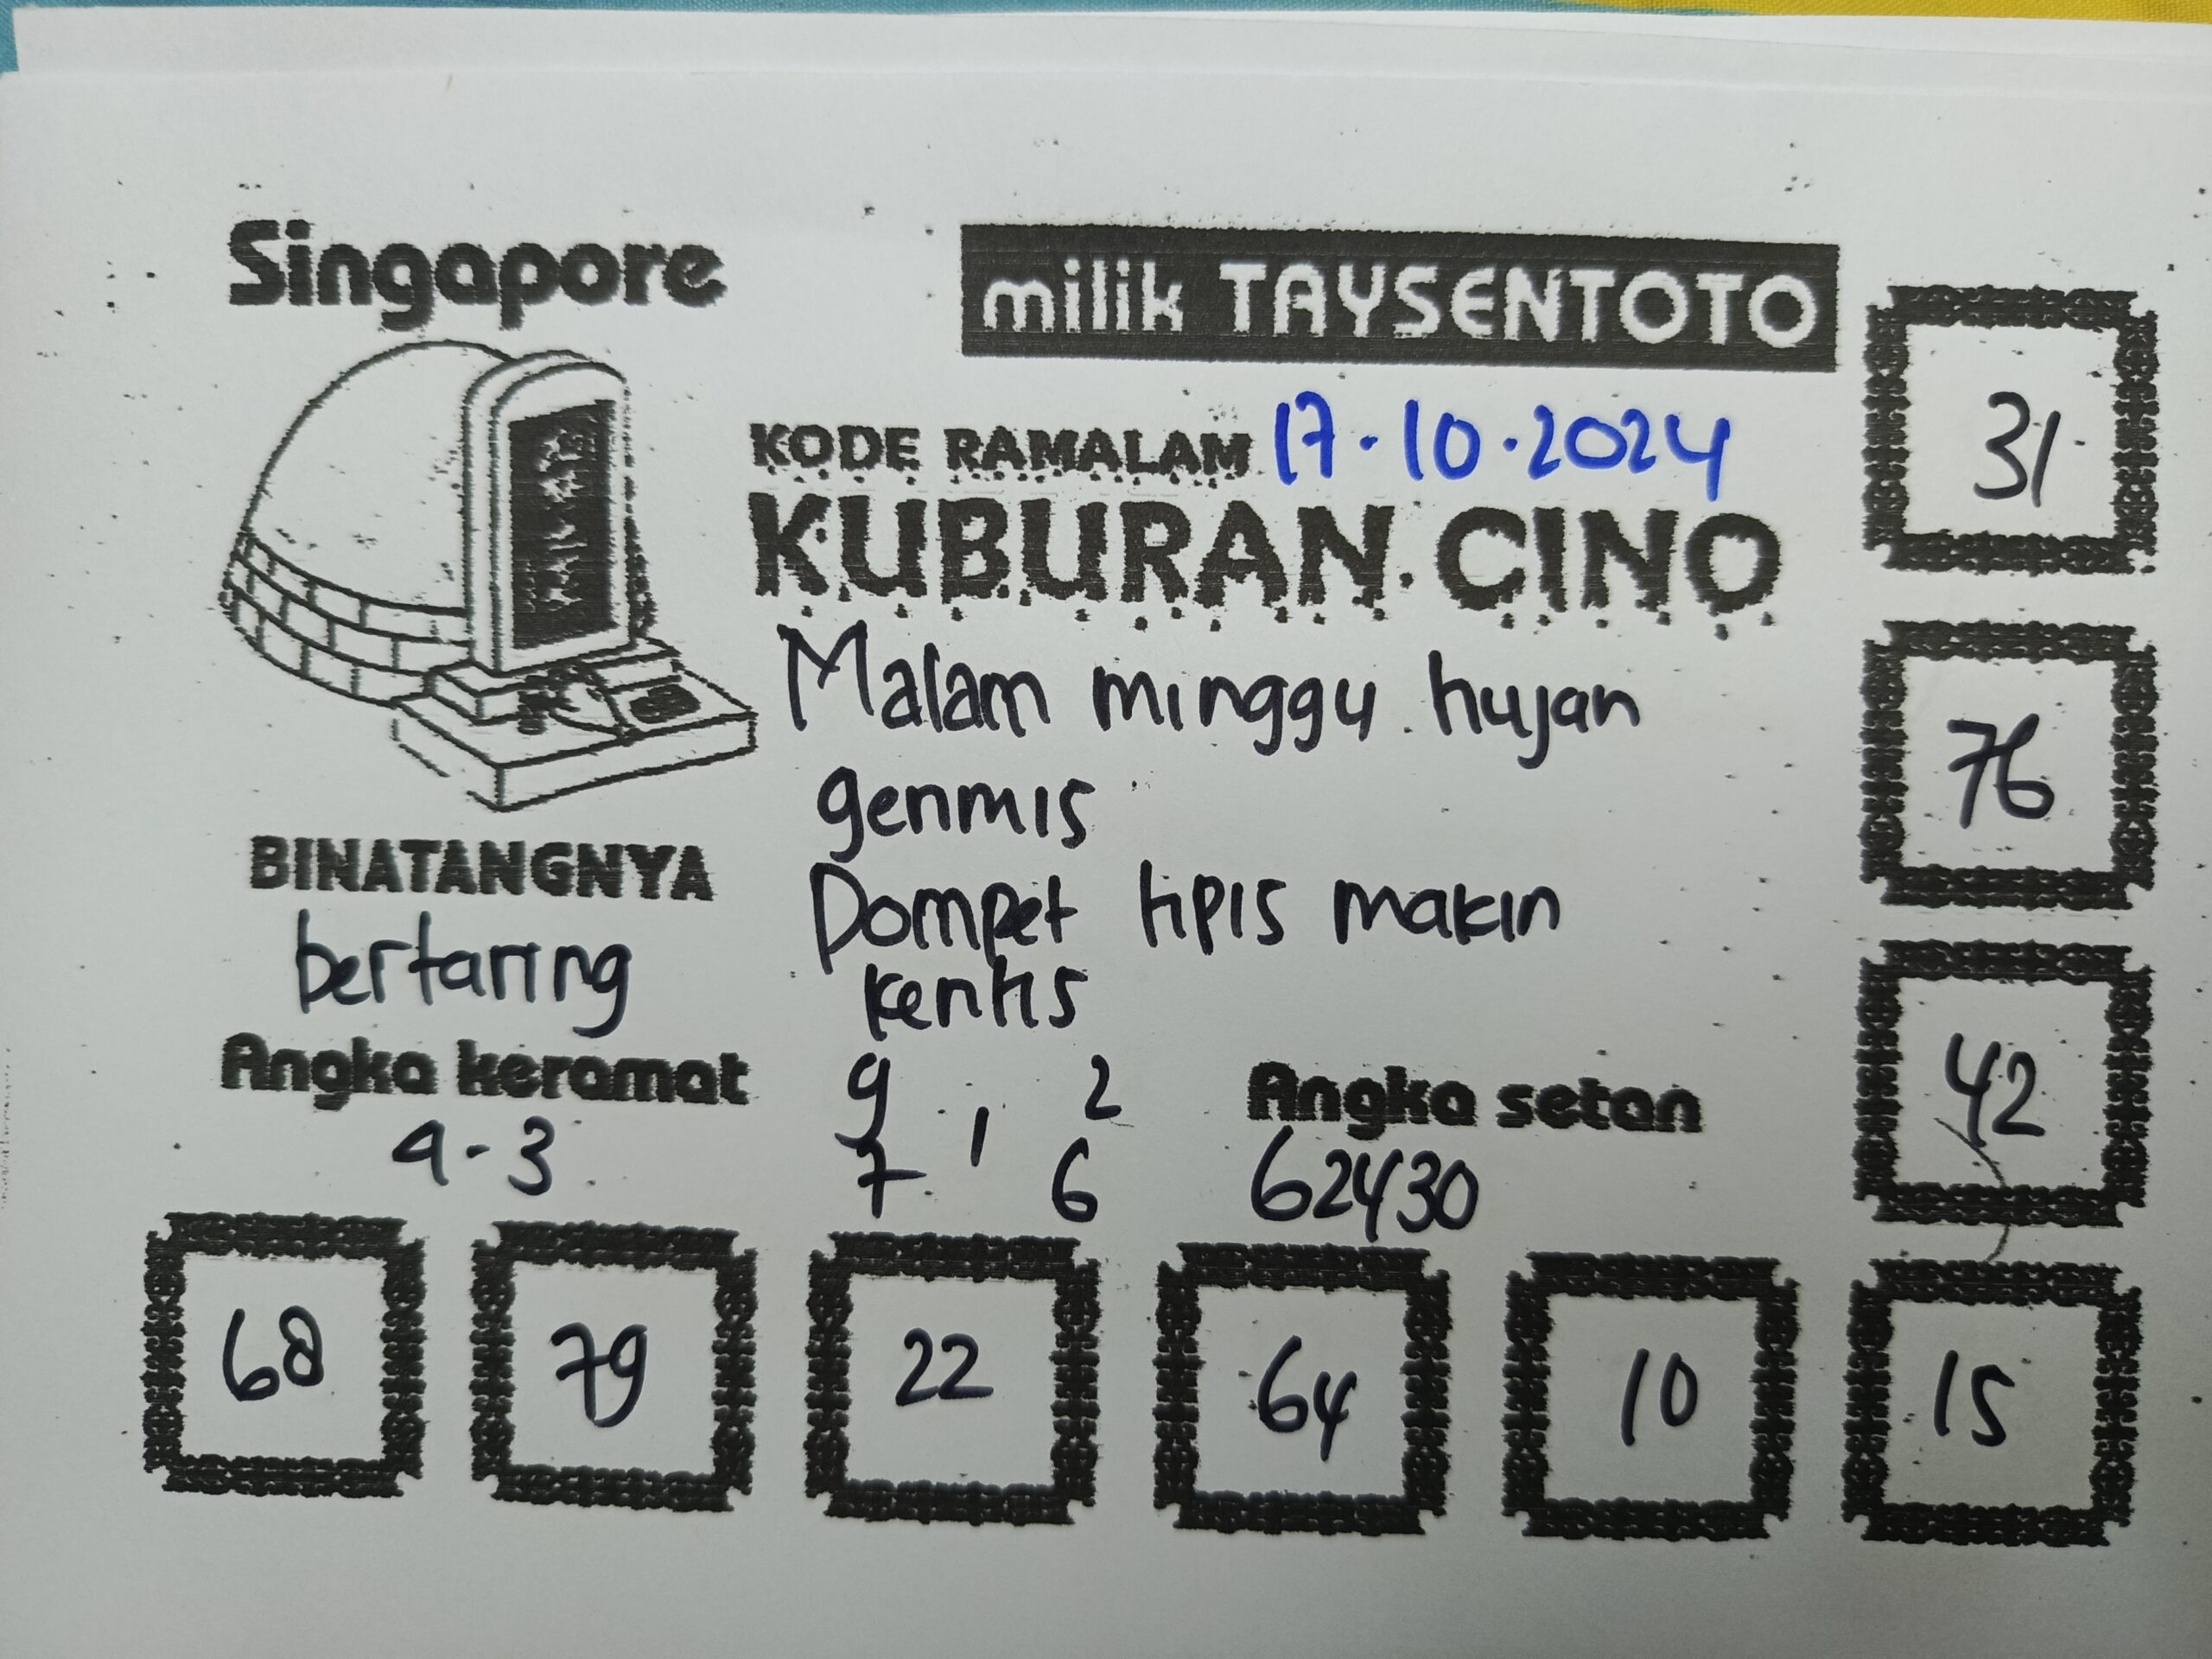 Singapore
milik TAYSENTOTO
KODE RAMALAM 17.10.2024
KUBURAN CINO
Malam minggu hujan
genmis
Dompet tipis makin
kentis
BINATANGNYA
bertaring
Angka keramat
9-3
9 2
1
7 6
Angka setan
62430
31
76
42
68
79
22
64
10
15